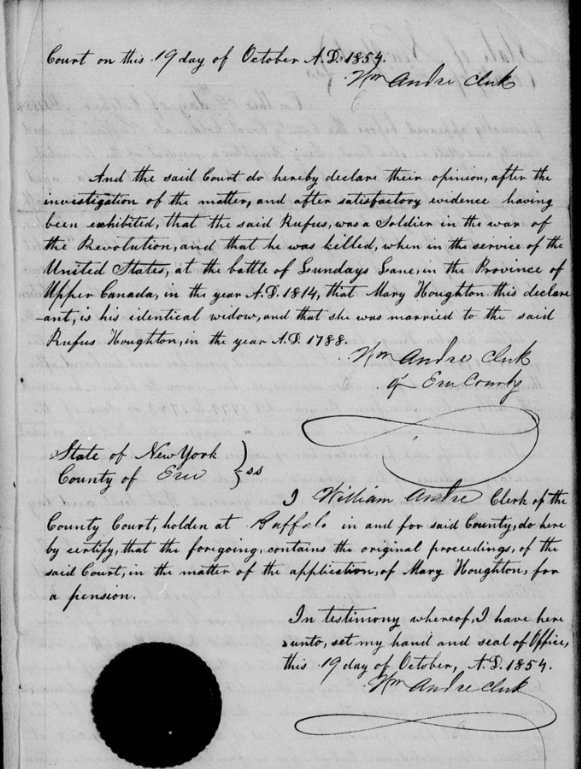 Court on this 19 day of October A.D. 1854.
Wm Andre Clerk
And the said Court do hereby declare their opinion, after the
investigation of the matter, and after satisfactory evidence having
been exhibited, that the said Rufus, was a Soldier in the war of
the Revolution, and that he was killed, when in the service of the
United States, at the battle of Lundays Lane, in the Province of
Upper Canada, in the year A.D. 1814, that Mary Houghton this declar
ant, is his identical widow, and that she was married to the said
Rufus Houghton, in the year A.D. 1788.
Wm Andre Clerk
of Erie County
State of New York
County of Erie } ss
I William Andre Clerk of the
County Court, holden at Buffalo in and for said County, do here
by certify, that the foregoing, contains the original proceedings, of the
said Court, in the matter of the application, of Mary Houghton, for
a pension.
In testimony whereof, I have here
unto, set my hand and seal of Office,
this 19 day of October, A.D. 1854.
Wm Andre Clerk